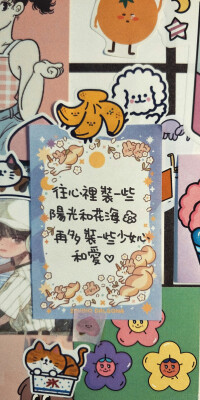 往心裡裝一些
陽光和花海
再多裝一些少女心
和愛♡